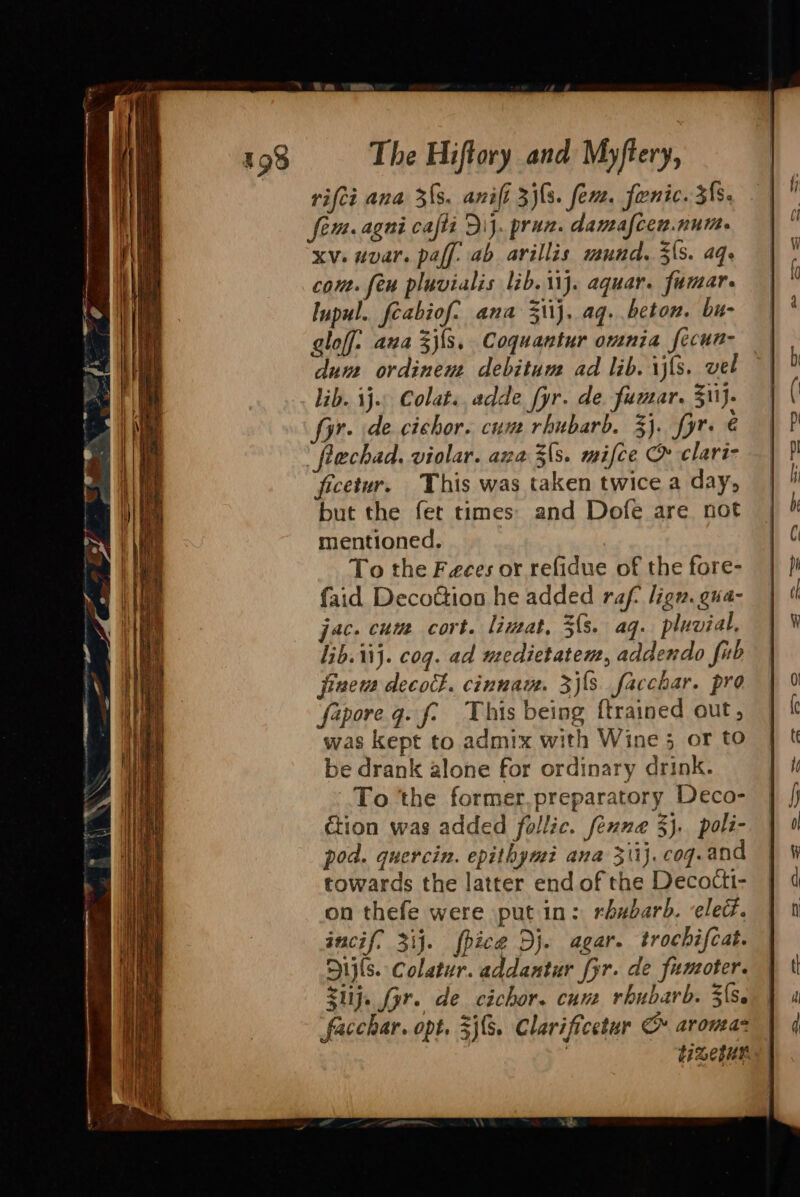 198 The Hiſtory and Myſtery,
riſci ana ʒſs. aniſi ʒjſs. ſem. fœnic. ʒſs.
ſem. agni caſti ℈ij. prun. damaſcen. num.
xv. uvar. paſſ. ab arillis mund. ℥ſs. aq.
com. ſeu pluvialis lib. iij. aquar. fumar.
lupul. ſcabioſ. ana ℥iij. aq. beton. bu-
gloſſ. ana ℥jſs. Coquantur omnia ſecun-
dum ordinem debitum ad lib. ijſs. vel
lib. ij. Colat. adde ſyr. de fumar. ℥iij.
ſyr. de cichor. cum rhubarb. ℥j. ſyr. è
ſtœchad. violar. ana ℥ſs. miſce & clari-
ficetur. This was taken twice a day,
but the ſet times and Doſe are not
mentioned.
To the Fæces or reſidue of the fore-
ſaid Decoction he added raſ. lign. gua-
jac. cum cort. limat. ℥ſs. aq. pluvial.
lib. iij. coq. ad medietatem, addendo ſub
finem decoct. cinnam. ʒjſs ſacchar. pro
ſapore q. ſ. This being ſtrained out,
was kept to admix with Wine; or to
be drank alone for ordinary drink.
To the former preparatory Deco-
ction was added follic. ſennæ ℥j. poli-
pod. quercin. epithymi ana ʒiij. coq. and
towards the latter end of the Decocti-
on theſe were put in: rhubarb. elect.
inciſ. ʒij. ſpicæ ℈j. agar. trochiſcat.
℈ijſs. Colatur. addantur ſyr. de fumoter.
℥iij. ſyr. de cichor. cum rhubarb. ℥ſs.
ſacchar. opt. ℥jſs. Clarificetur & aroma-
tizetur